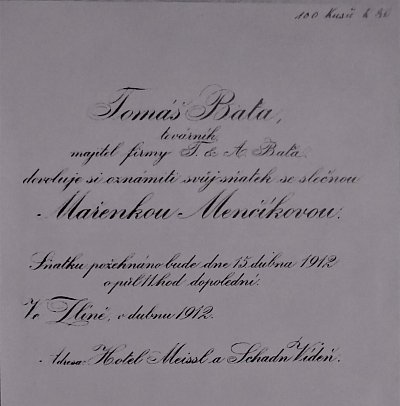 100 Kusů
Tomáš Baťa,
továrník,
majitel firmy T. & A. Baťa
dovoluje si oznámiti svůj sňatek se slečnou
Mařenkou Menčíkovou.
Sňatku požehnáno bude dne 15. dubna 1912
o půl 11. hod dopolední.
Ve Zlíně, v dubnu 1912.
Adresa: Hotel Meissl a Schadn Vídeň.